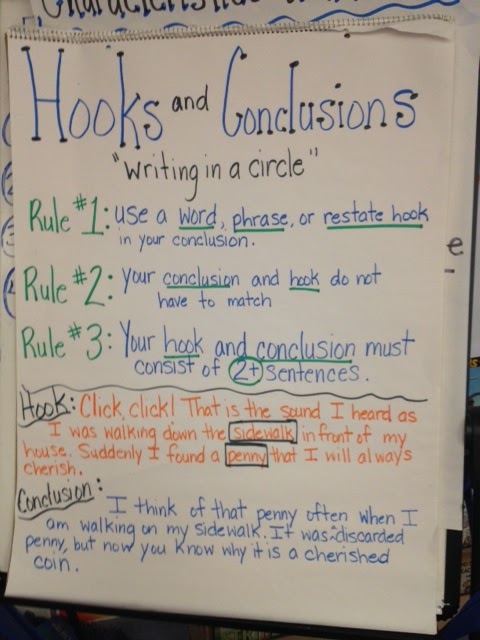 Characteristics
Hooks and Conclusions
"Writing in a circle"
Rule #1: use a word, phrase, or restate hook
in your conclusion.
Rule #2: Your conclusion and hook do not
have to match
Rule #3: Your hook and conclusion must
consist of 2+ sentences.
Hook: Click, click! That is the sound I heard as
I was walking down the sidewalk in front of my
house. Suddenly I found a penny that I will always
cherish.
Conclusion:
I think of that penny often when I
am walking on my sidewalk. It was discarded
penny, but now you know why it is a cherished
coin.
e